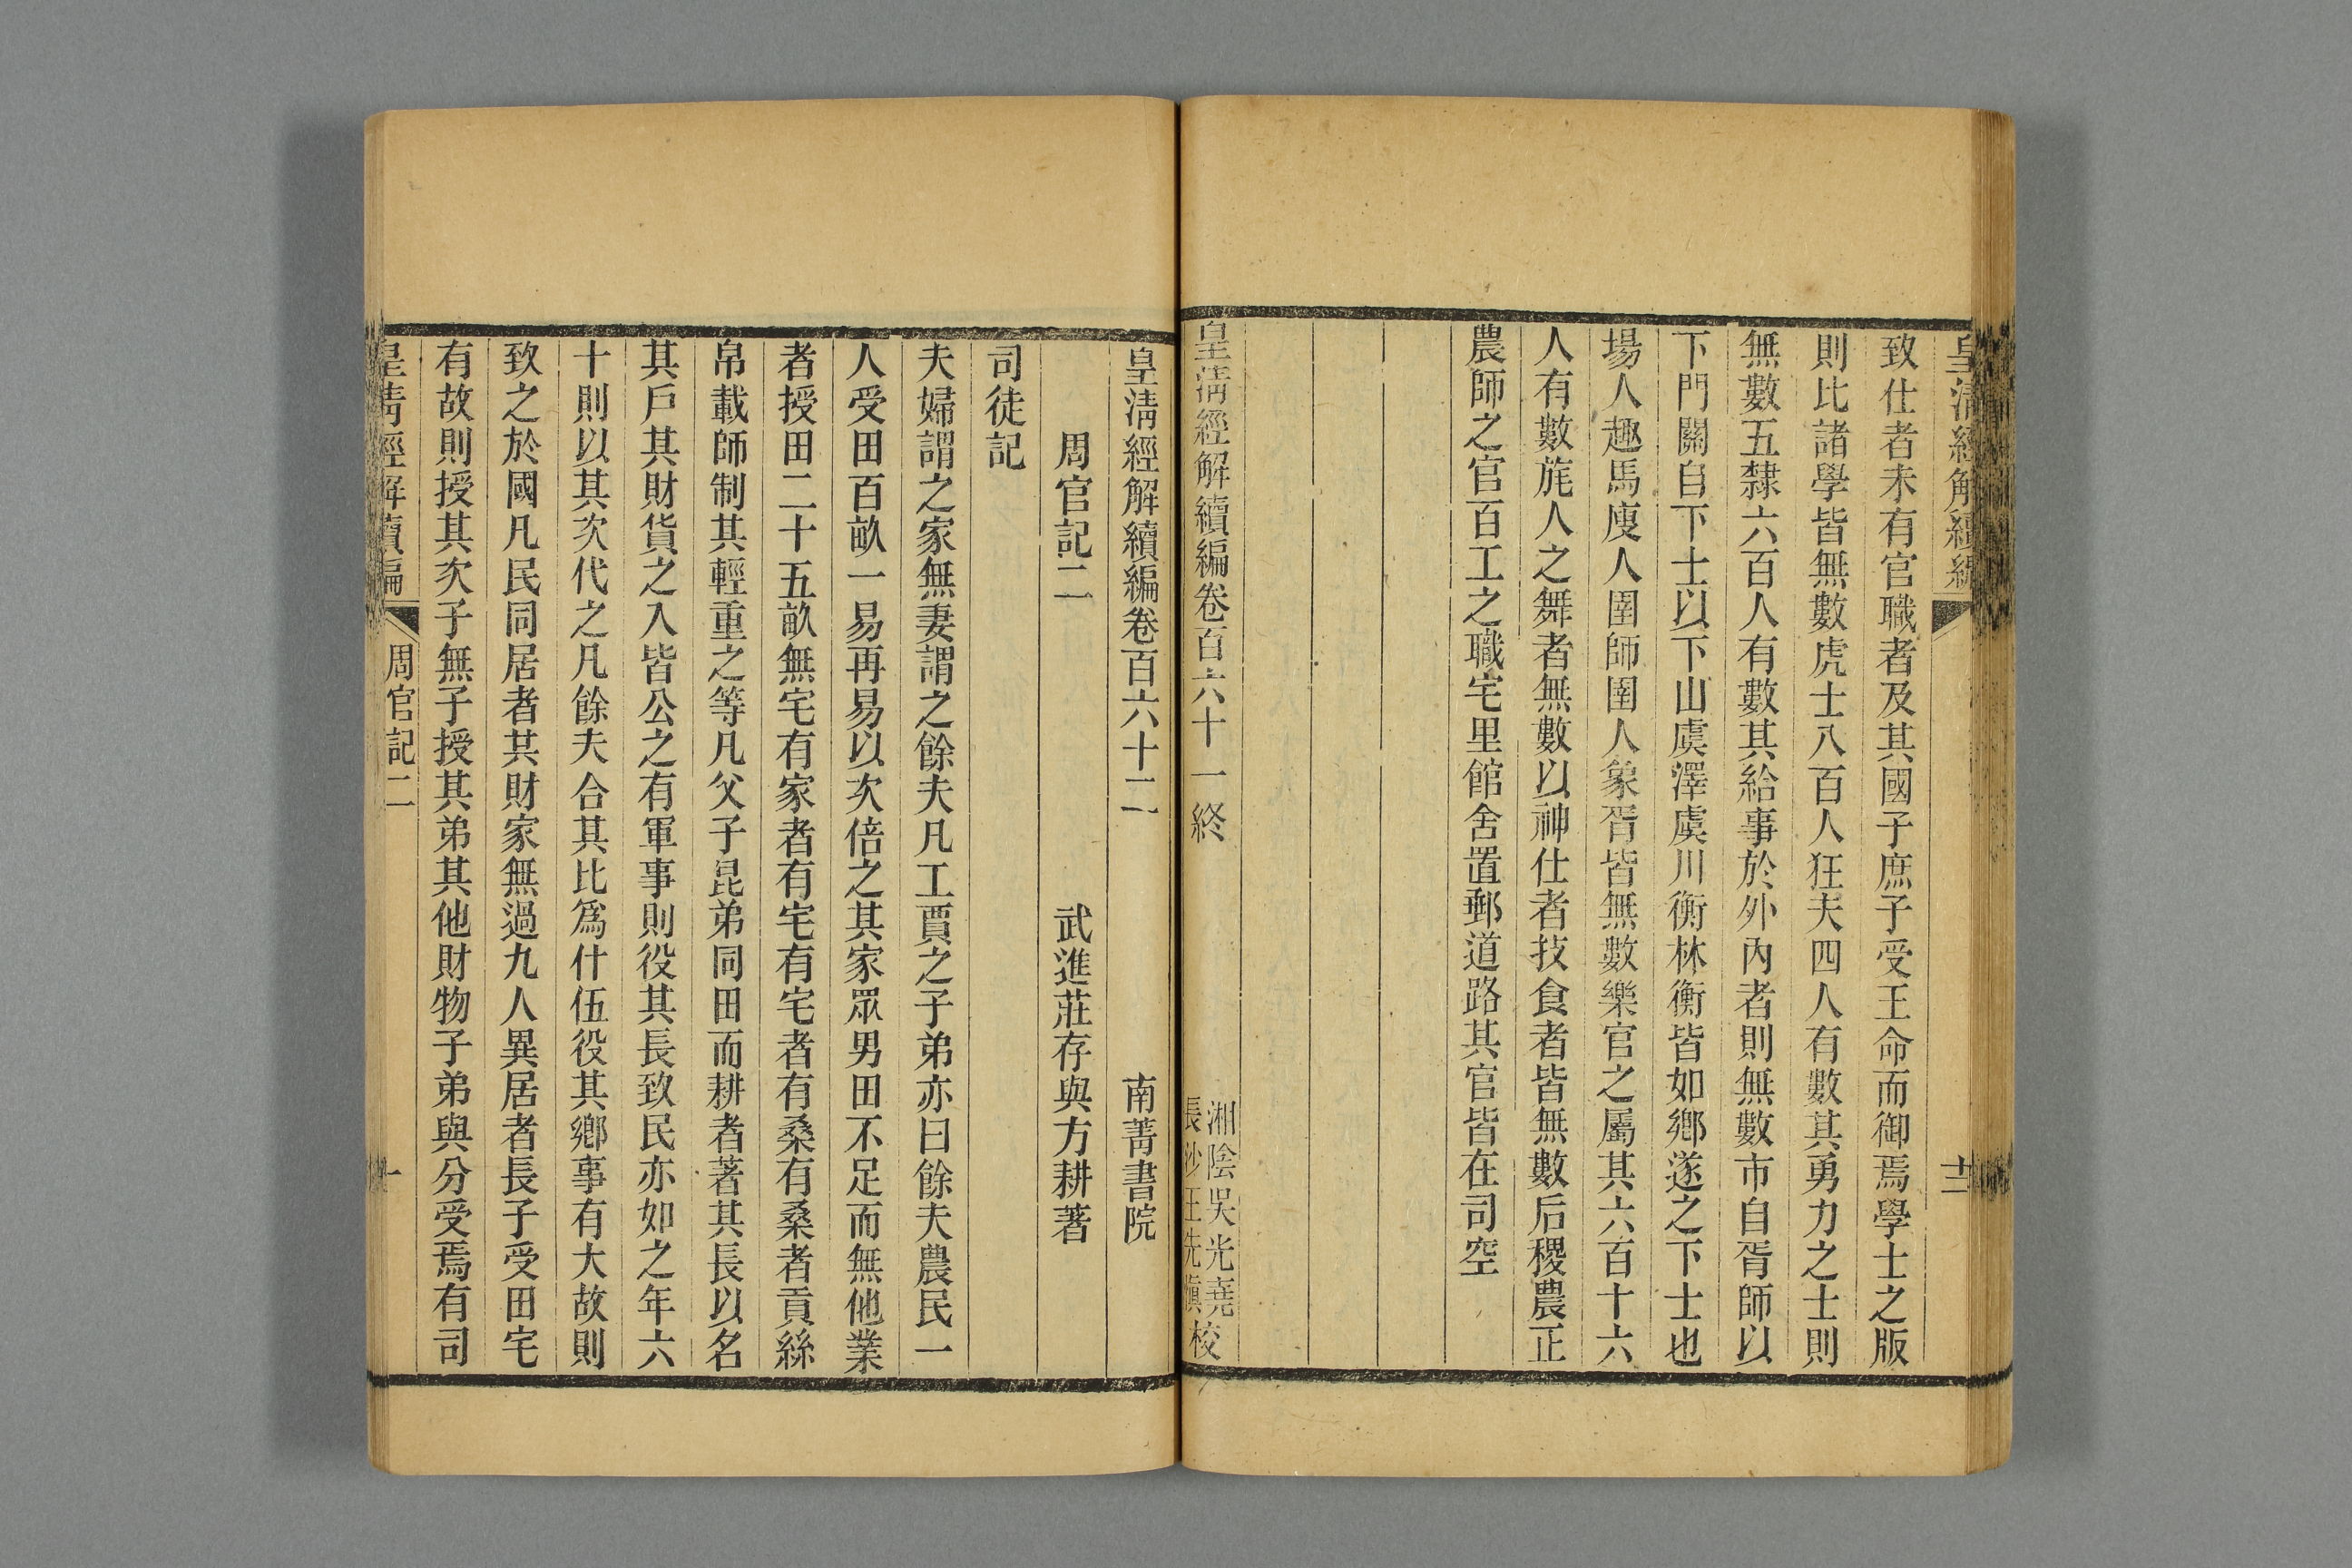 皇淸經解續編
十二
致仕者未有官職者及其國子庶子受王命而御焉學士之版
則比諸學皆無數虎士八百人狂夫四人有數其勇力之士則
無數五隸六百人有數其給事於外內者則無數市自胥師以
下門關自下士以下山虞澤虞川衡林衡皆如鄉遂之下士也
場人趣馬廋人圉師圉人象胥皆無數樂官之屬其六百十六
人有數旄人之舞者無數以神仕者技食者皆無數后稷農正
農師之官百工之職宅里館舍置郵道路其官皆在司空
皇淸經解續編卷百六十一終
湘陰吳光堯
長沙王先愼校
皇淸經解續編卷百六十二
南菁書院
周官記二
武進莊存與方耕著
司徒記
夫婦謂之家無妻謂之餘夫凡工賈之子弟亦曰餘夫農民一
人受田百畝一易再易以次倍之其家眾男田不足而無他業
者授田二十五畝無宅有家者有宅有宅者有桑有桑者貢絲
帛載師制其輕重之等凡父子昆弟同田而耕者著其長以名
其戶其財貨之入皆公之有軍事則役其長致民亦如之年六
十則以其次代之凡餘夫合其比爲什伍役其鄉事有大故則
致之於國凡民同居者其財家無過九人異居者長子受田宅
有故則授其次子無子授其弟其他財物子弟與分受焉有司
皇淸經解續編
周官記二
一